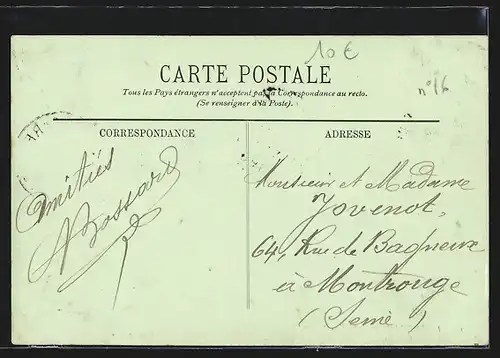 10€
CARTE POSTALE
n° 16
Tous les Pays étrangers n'acceptent pas la Correspondance au recto.
(Se renseigner à la Poste).
CORRESPONDANCE
Amitiés
Bossard
ADRESSE
Monsieur et Madame
Jovenot,
64, Rue de Bagneux
à Montrouge
(Seine)